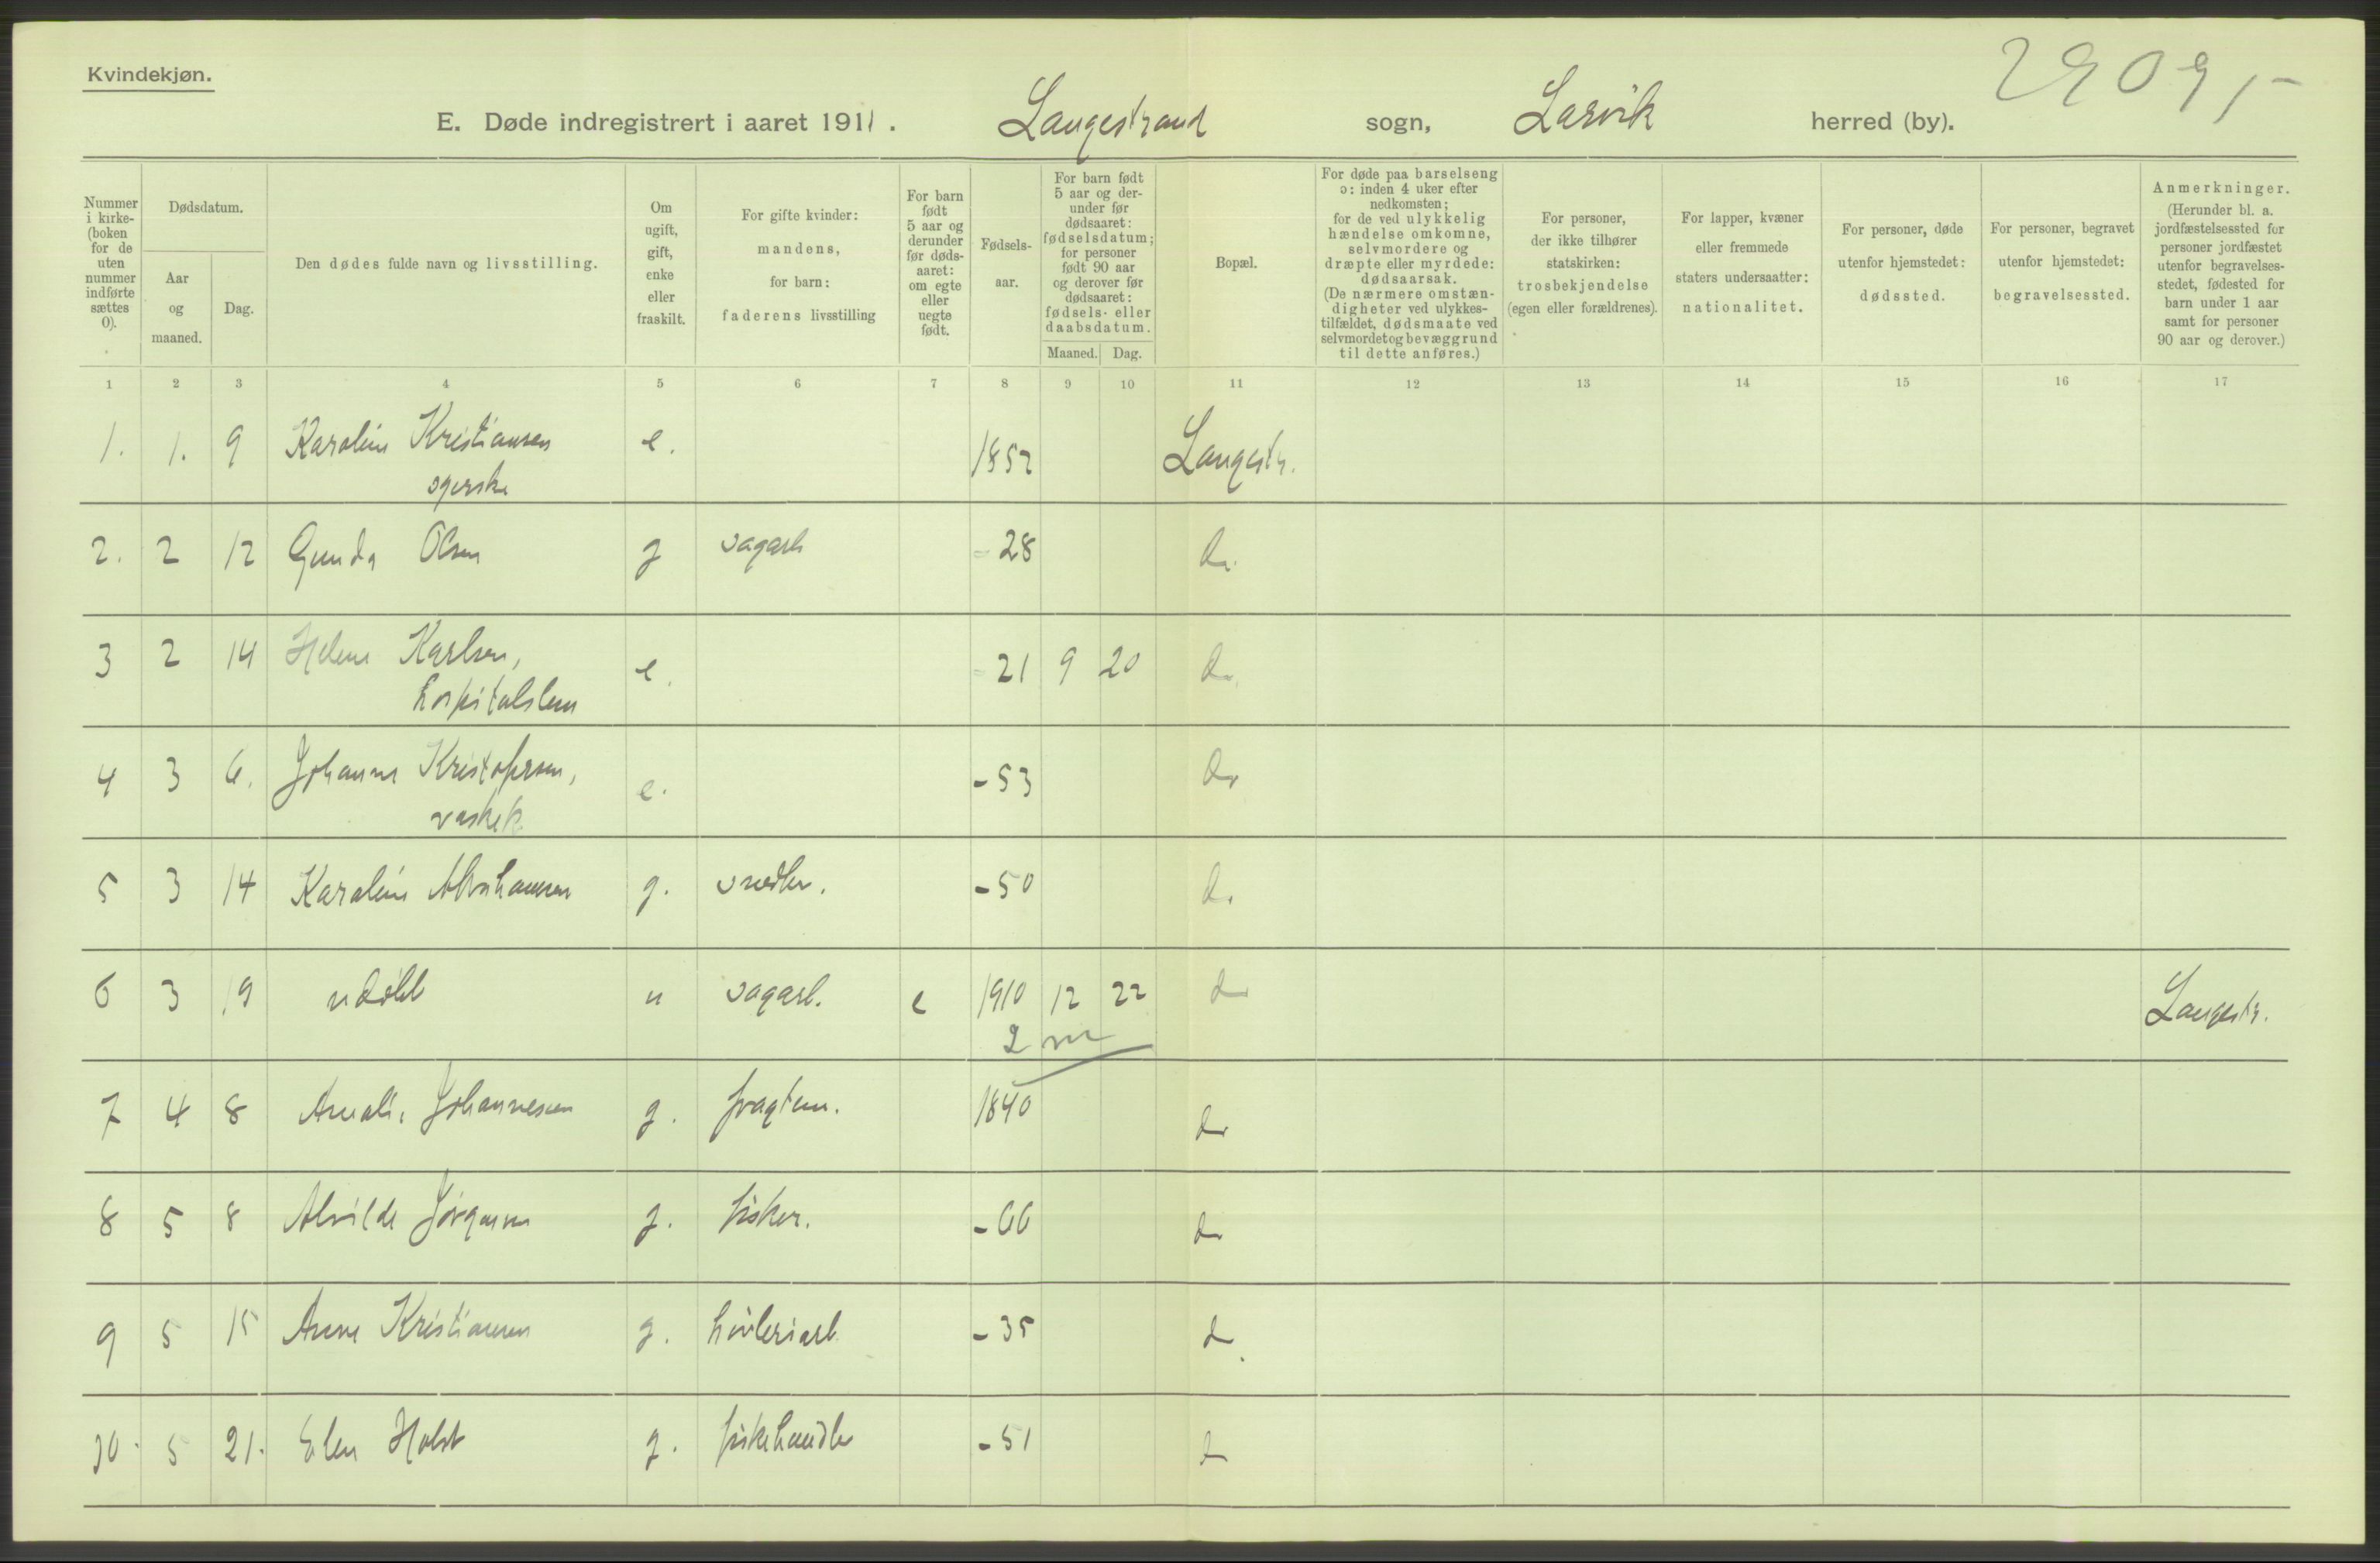 Kvindekjøn.
E. Døde indregistrert i aaret 1911. Langestrand sogn, Larvik herred (by).
Nummer i kirke- (boken for de uten nummer indførte sættes 0).
Dødsdatum.
Aar og maaned.
Dag.
Den dødes fulde navn og livsstilling.
Om ugift, gift, enke eller fraskilt.
For gifte kvinder: mandens, for barn: faderens livsstilling
For barn født 5 aar og derunder før døds- aaret: om egte eller uegte født.
Fødsels- aar.
For barn født 5 aar og der- under før dødsaaret: fødselsdatum; for personer født 90 aar og derover før dødsaaret: fødsels- eller daabsdatum.
Maaned. Dag.
Bopæl.
For døde paa barselseng ɔ: inden 4 uker efter nedkomsten; for de ved ulykkelig hændelse omkomne, selvmordere og dræpte eller myrdede: dødsaarsak. (De nærmere omstæn- digheter ved ulykkes- tilfældet, dødsmaate ved selvmordet og bevæggrund til dette anføres.)
For personer, der ikke tilhører statskirken: trosbekjendelse (egen eller forældrenes).
For lapper, kvæner eller fremmede staters undersaatter: nationalitet.
For personer, døde utenfor hjemstedet: dødssted.
For personer, begravet utenfor hjemstedet: begravelsessted.
Anmerkninger. (Herunder bl. a. jordfæstelsessted for personer jordfæstet utenfor begravelses- stedet, fødested for barn under 1 aar samt for personer 90 aar og derover.)
1 2 3 4 5 6 7 8 9 10 11 12 13 14 15 16 17
1. 1. 9 Karoline Kristiansen e. 1852 Langestr.
syerske
2. 2 12 Gunda Olsen g sagarb - 28 do.
3 2 14 Helene Karlsen, e. - 21 9 20 do.
hospitalslem
4 3 6. Johanne Kristofersen, e. - 53 do
vaskek
5 3 14 Karoline Abrahamsen g. snedker. - 50 do
6 3 19 udøbt u sagarb. e 1910 12 22 do Langestr.
2 m
7 4 8 Amalie Johannesen g. fragtem. 1840 do
8 5 8 Alvilde Jörgensen g. fisker. - 66 do
9 5 15 Anne Kristiansen g. hövleriarb - 35 do.
10. 5 21. Elen Holst g. fiskehandler - 51 do